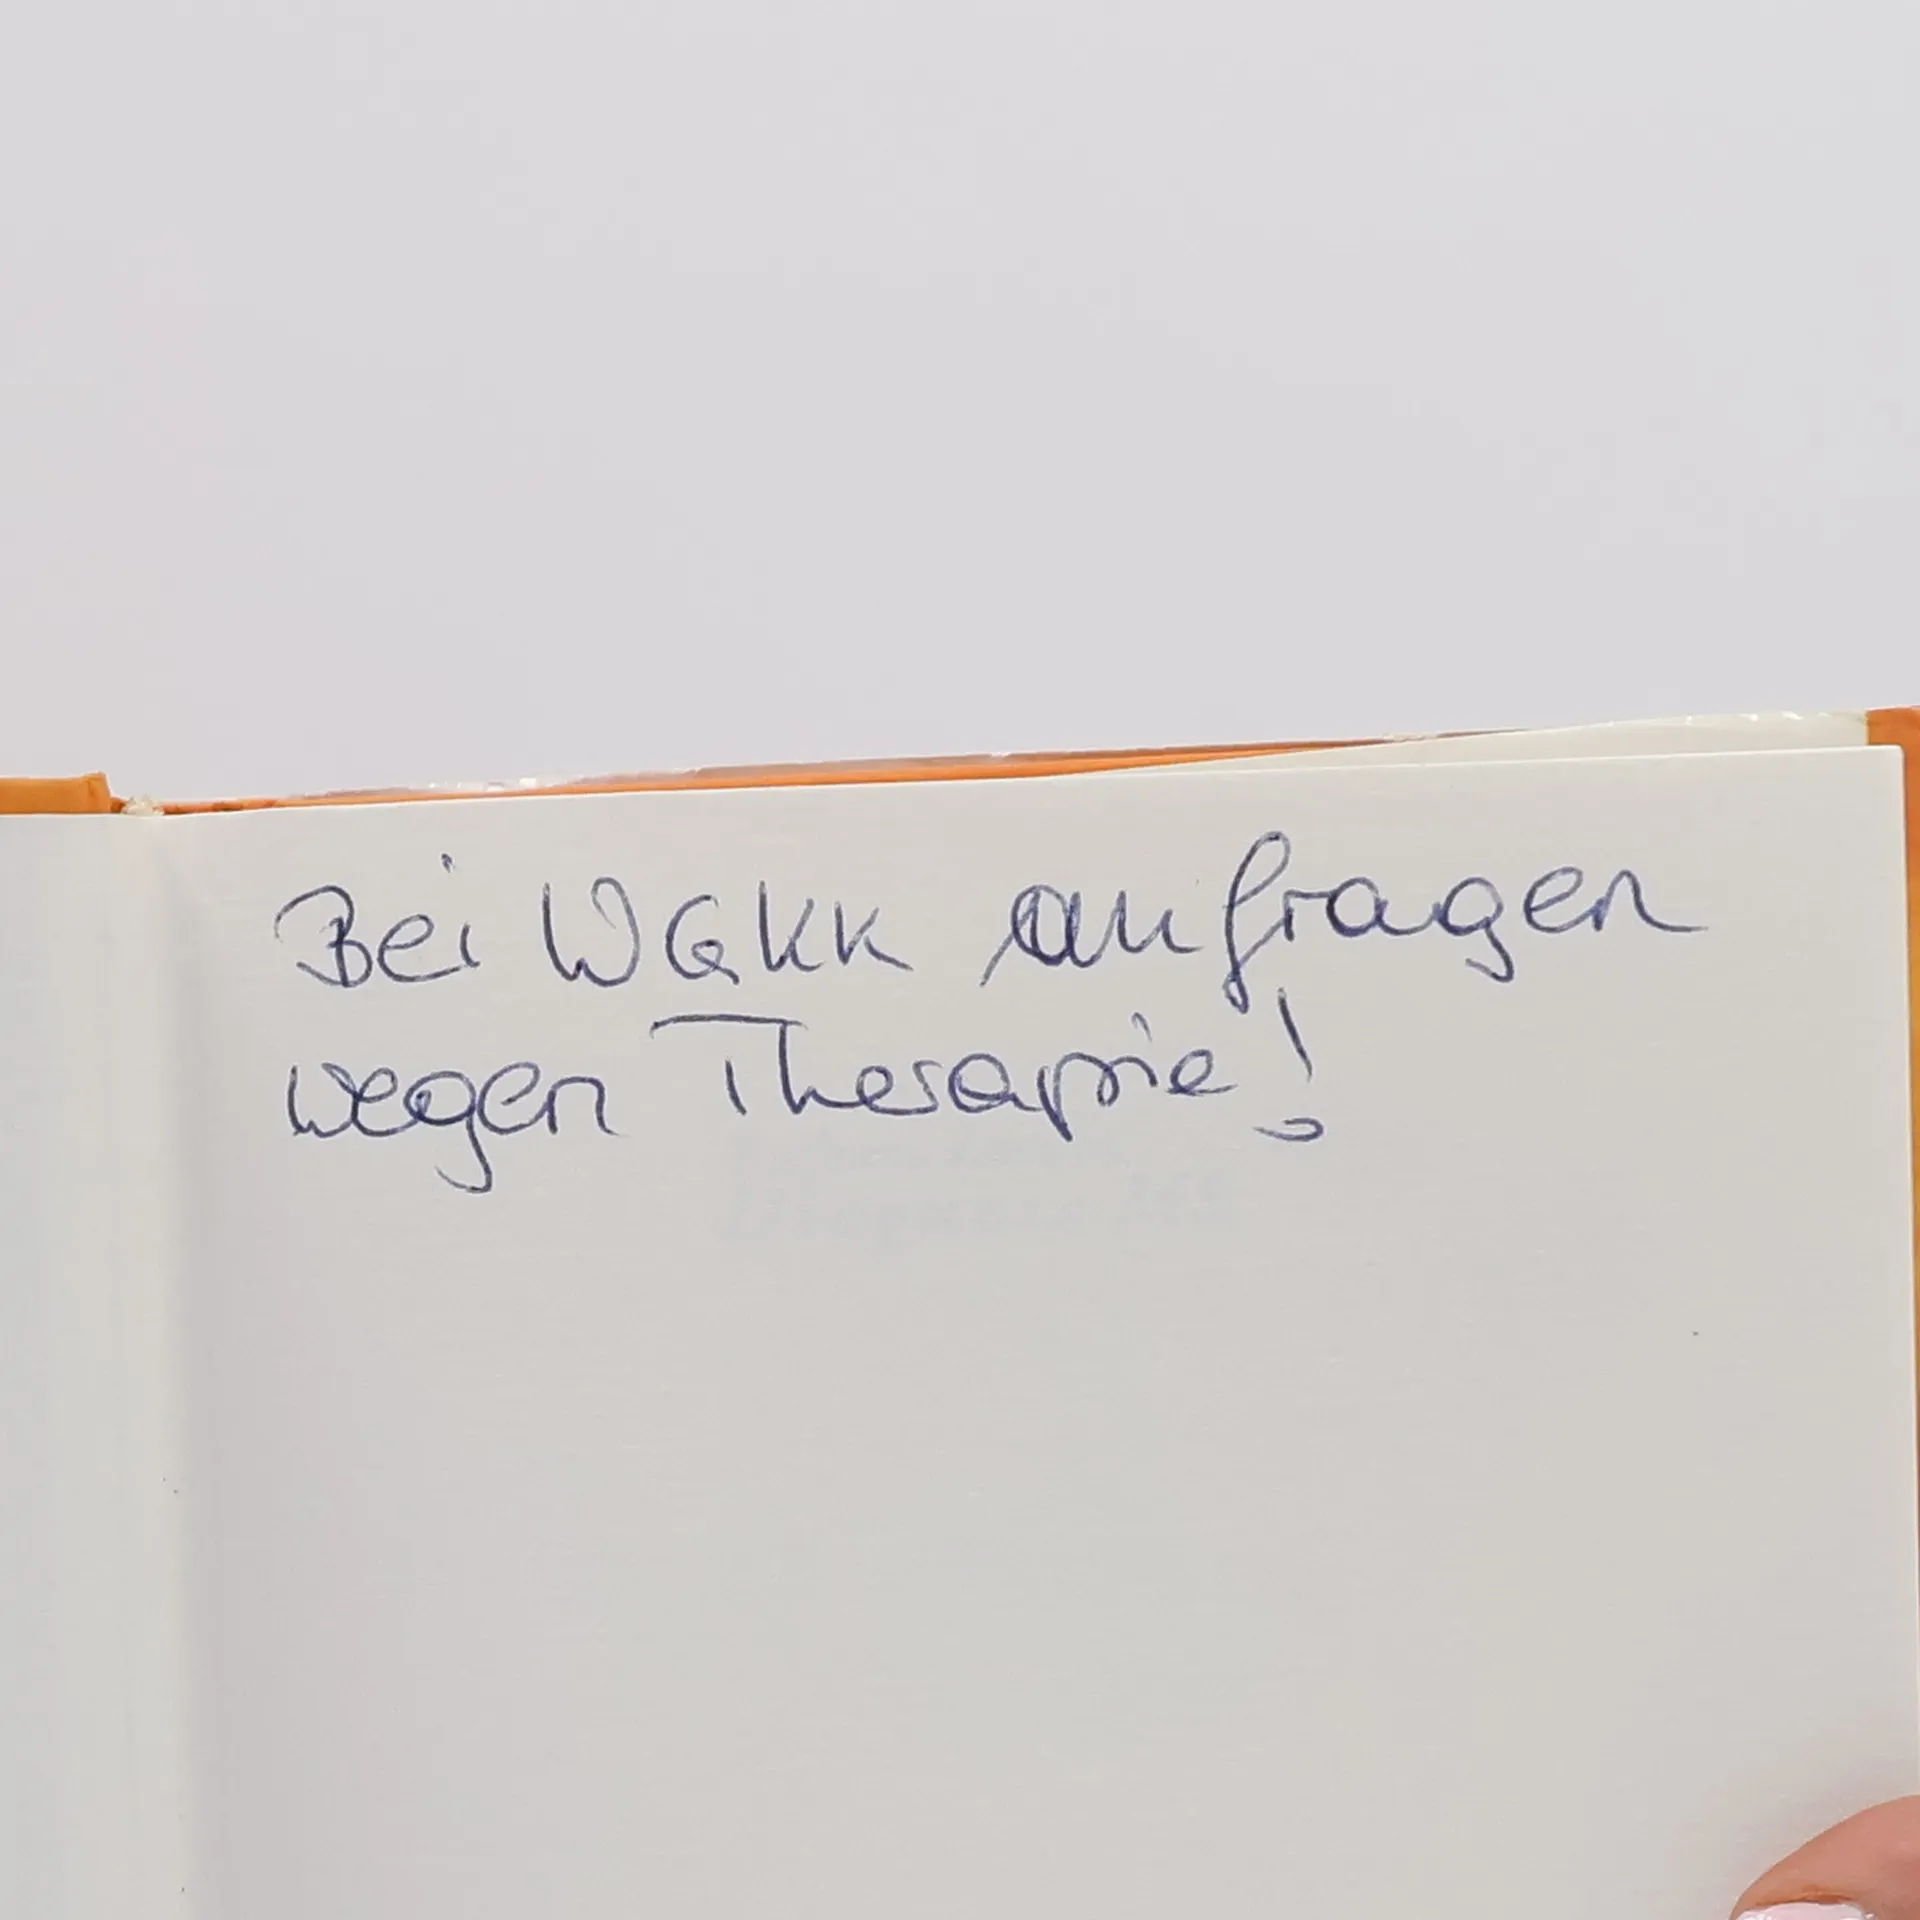 Bei WGKK anfragen
wegen Therapie!